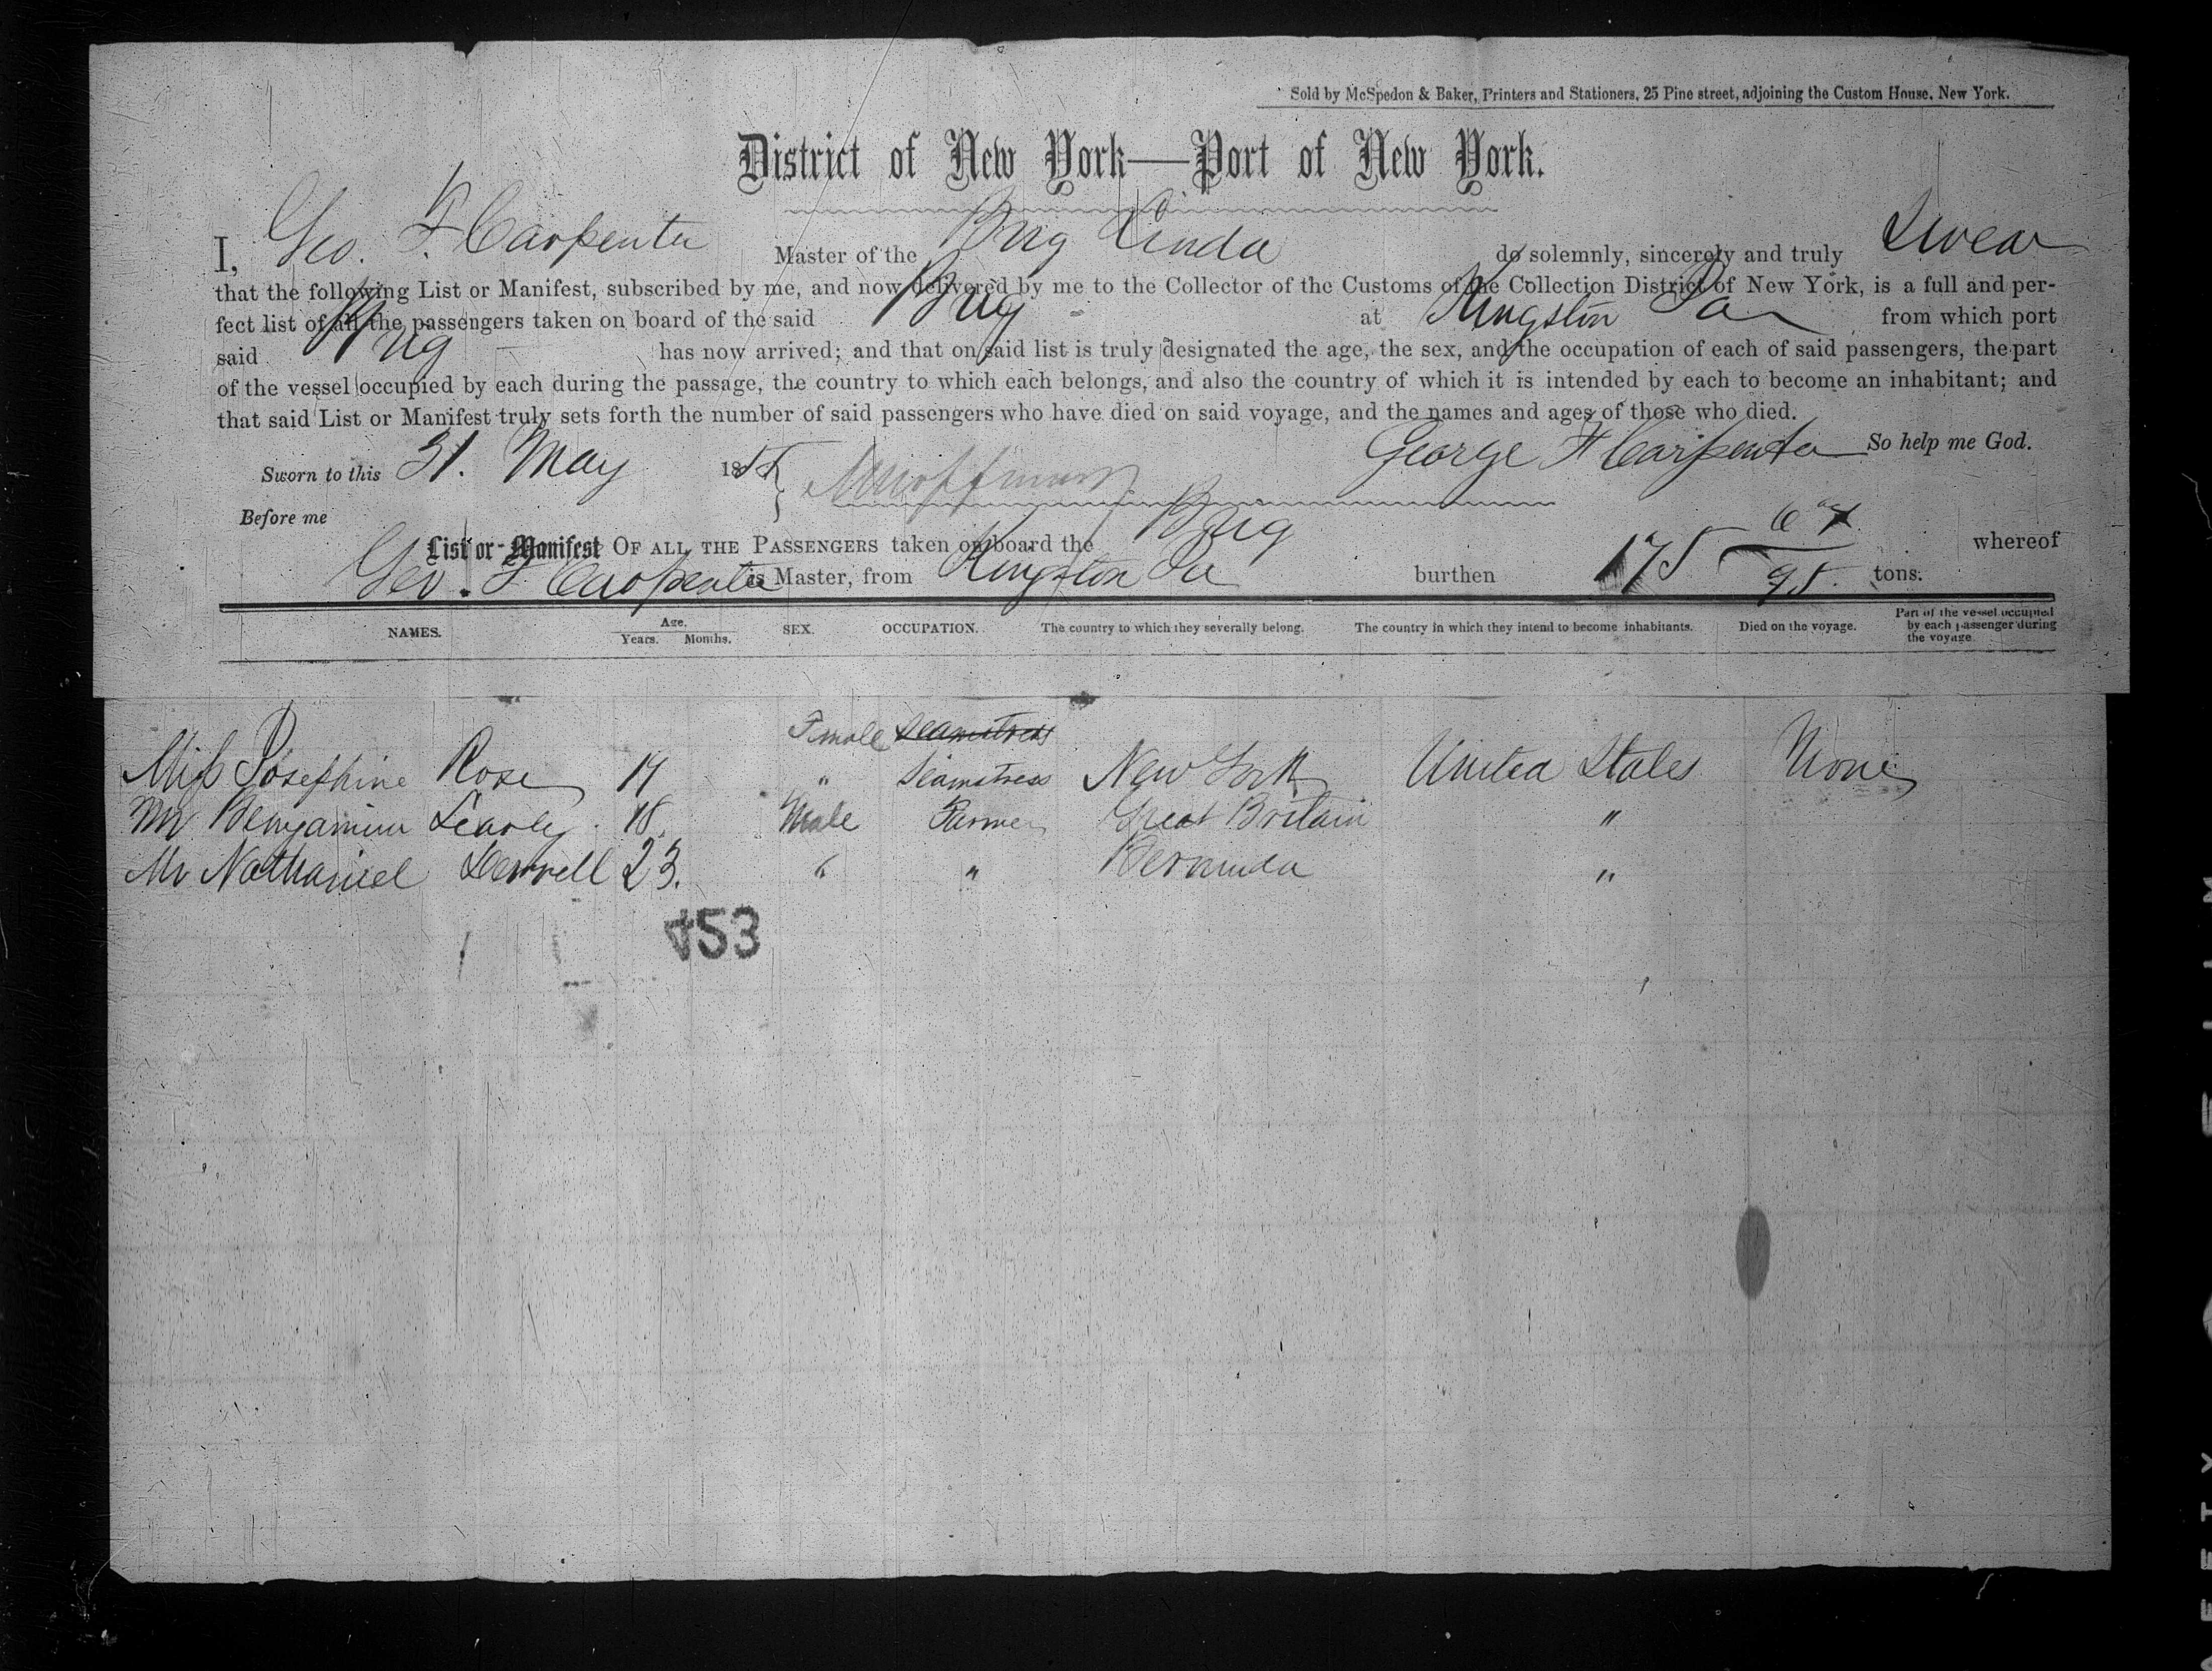 Sold by McSpedon & Baker, Printers and Stationers, 25 Pine street, adjoining the Custom House, New York.
District of New York—Port of New York.
I, Geo. F. Carpenter Master of the Brig Linda do solemnly, sincerely and truly Swear
that the following List or Manifest, subscribed by me, and now delivered by me to the Collector of the Customs of the Collection District of New York, is a full and per-
fect list of all the passengers taken on board of the said Brig at Kingston Ja from which port
said Brig has now arrived; and that on said list is truly designated the age, the sex, and the occupation of each of said passengers, the part
of the vessel occupied by each during the passage, the country to which each belongs, and also the country of which it is intended by each to become an inhabitant; and
that said List or Manifest truly sets forth the number of said passengers who have died on said voyage, and the names and ages of those who died.
George F Carpenter So help me God.
Sworn to this 31. May 1855
Before me
List or Manifest OF ALL THE PASSENGERS taken on board the Brig whereof
Geo. F Carpenter is Master, from Kingston Ja burthen 175 67/95 tons.
NAMES. Age. Years. Months. SEX. OCCUPATION. The country to which they severally belong. The country in which they intend to become inhabitants. Died on the voyage. Part of the vessel occupied by each passenger during the voyage
Female Seamstress
Miss Josephine Rose 19 " Seamstress New York United States None
Mr Benjamin 18. Male Farmer Great Britain "
Mr Nathaniel 23. " " Bermuda "
453